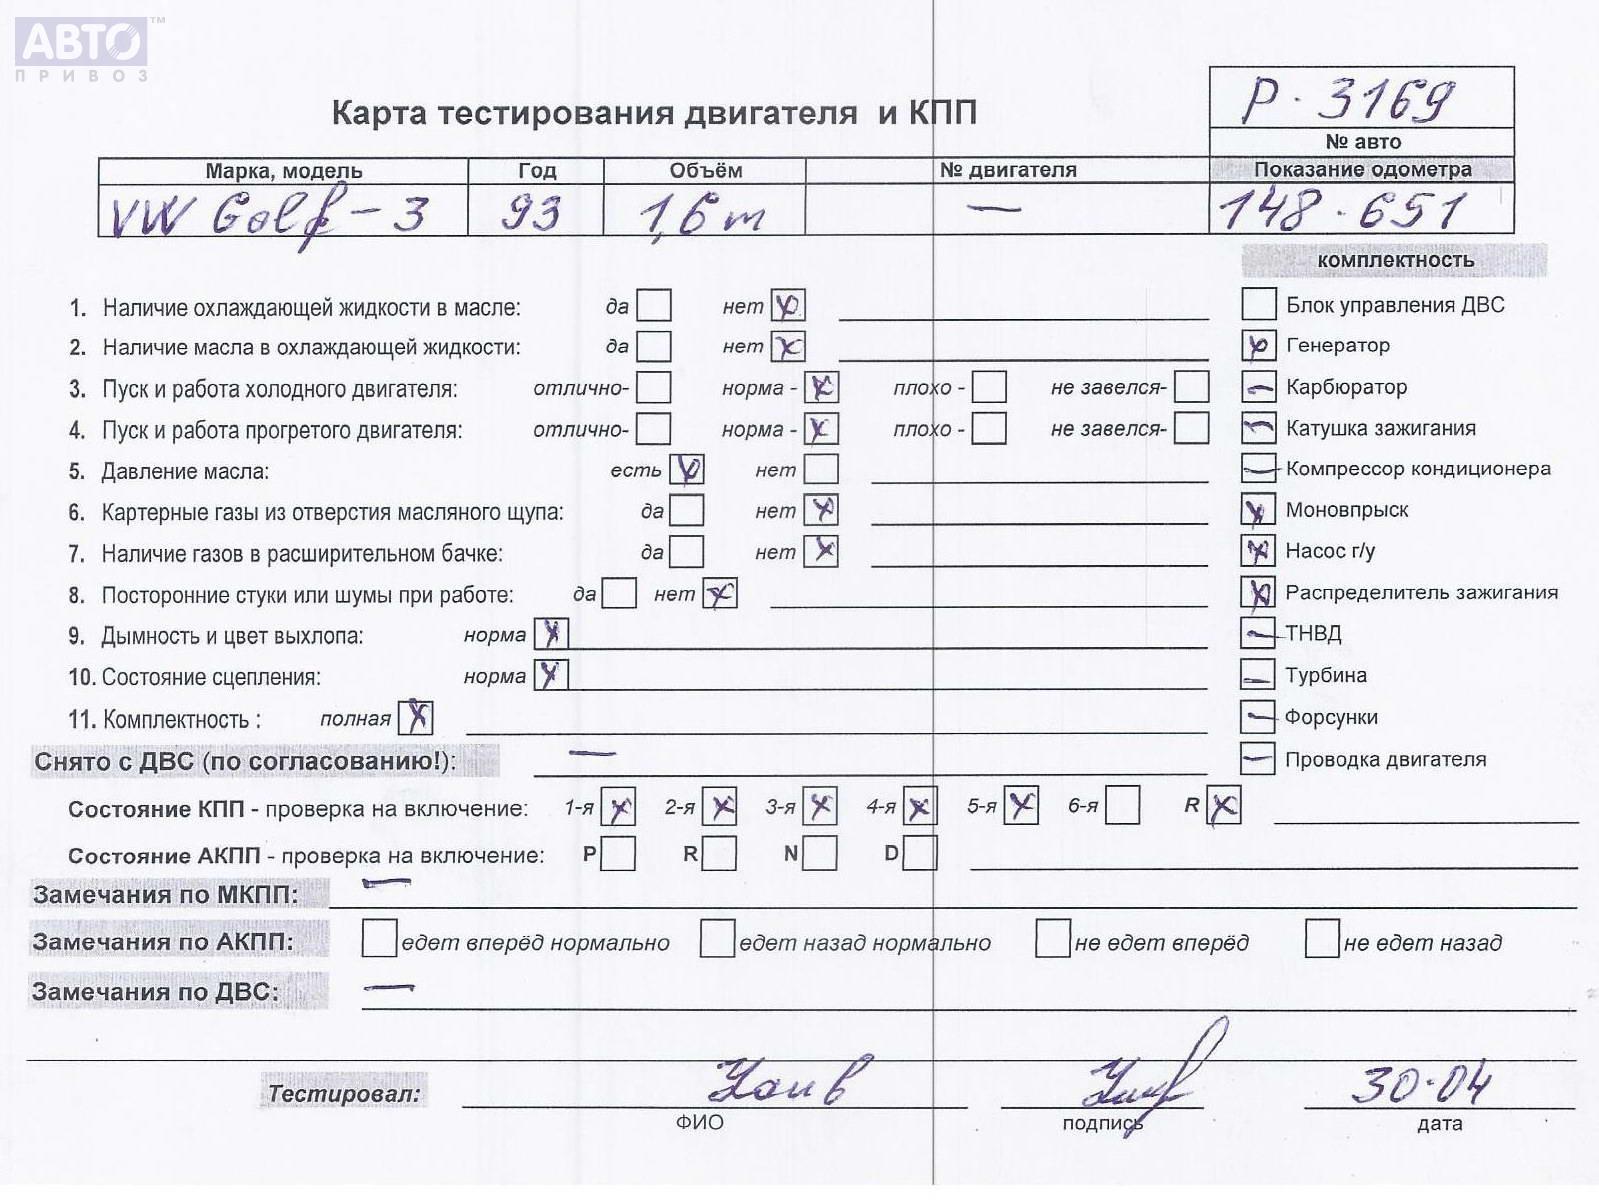 АВТО™
ПРИВОЗ
Р-3169
Карта тестирования двигателя и КПП
№ авто
Марка, модель Год Объём № двигателя Показание одометра
VW Golf-3 93 1,6 m — 148-651
комплектность
1. Наличие охлаждающей жидкости в масле: да нет
Блок управления ДВС
2. Наличие масла в охлаждающей жидкости: да нет
Генератор
3. Пуск и работа холодного двигателя: отлично- норма - плохо - не завелся-
Карбюратор
4. Пуск и работа прогретого двигателя: отлично- норма - плохо - не завелся-
Катушка зажигания
5. Давление масла: есть нет
Компрессор кондиционера
6. Картерные газы из отверстия масляного щупа: да нет
Моновпрыск
7. Наличие газов в расширительном бачке: да нет
Насос г/у
8. Посторонние стуки или шумы при работе: да нет
Распределитель зажигания
9. Дымность и цвет выхлопа: норма
ТНВД
10. Состояние сцепления: норма
Турбина
11. Комплектность : полная
Форсунки
Снято с ДВС (по согласованию!): —
Проводка двигателя
Состояние КПП - проверка на включение: 1-я 2-я 3-я 4-я 5-я 6-я R
Состояние АКПП - проверка на включение: P R N D
Замечания по МКПП: —
Замечания по АКПП: едет вперёд нормально едет назад нормально не едет вперёд не едет назад
Замечания по ДВС: —
Тестировал: 30-04
ФИО подпись дата